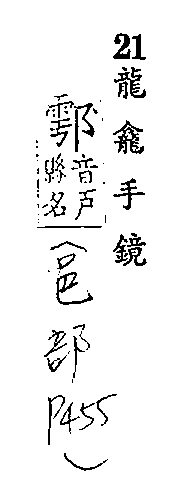 21龍龕手鏡
鄠
音户
縣名
(邑部P455)